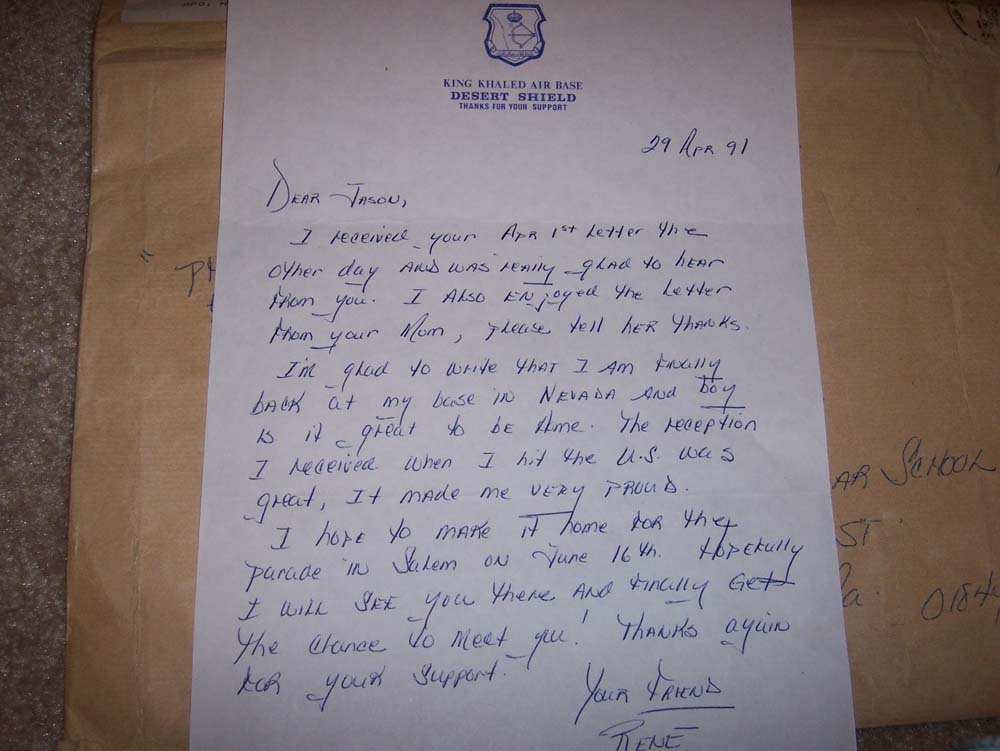 KING KHALED AIR BASE
DESERT SHIELD
THANKS FOR YOUR SUPPORT
29 Apr 91
Dear Jason,
I received your Apr 1st letter the
other day and was really glad to hear
from you. I also enjoyed the letter
from your Mom, please tell her thanks.
I'm glad to write that I am finally
back at my base in Nevada and boy
is it great to be home. The reception
I received when I hit the U.S. was
great, It made me very proud.
I hope to make it home for the
parade in Salem on June 16th. Hopefully
I will see you there and finally get
the chance to meet you! Thanks again
for your support.
Your Friend
Rene
AR SCHOOL
ST
a. 0184